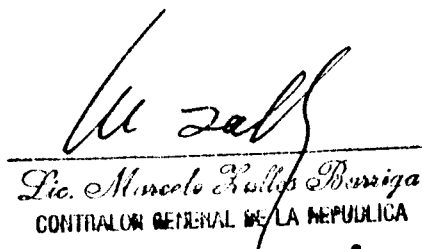 Lic. Marcelo Zalles Barriga
CONTRALOR GENERAL DE LA REPUBLICA